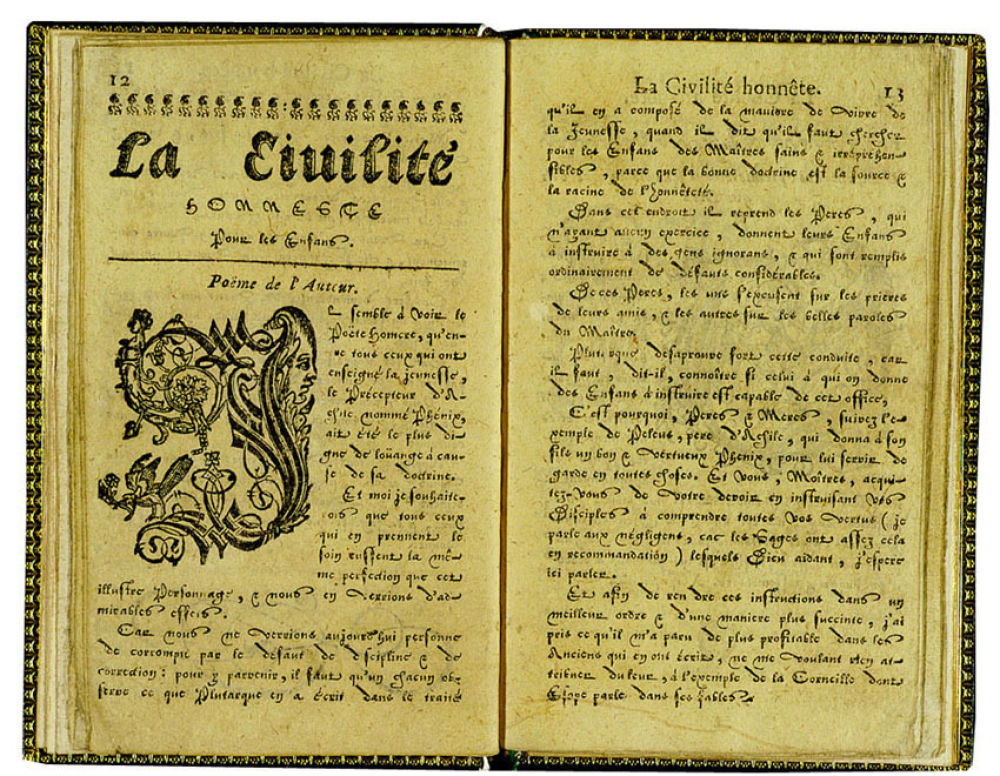 12
La Ciuilité
HONNESTE
Pour les Enfans.
Poëme de l'Auteur.
IL semble à voir le
Poëte Homere, qu'en-
tre tous ceux qui ont
enseigné la jeunesse,
le Précepteur d'A-
chile nommé Phénix,
ait été le plus di-
gne de loüange à cau-
se de sa doctrine.
Et moi je souhaite-
rois que tous ceux
qui en prennent le
soin eussent la mê-
me perfection que cet
illustre Personnage, & nous en verrions d'ad-
mirables effets.
Car nous ne verrions aujourd'hui personne
de corrompu par le défaut de discipline & de
correction : pour y parvenir, il faut qu'un chacun ob-
serve ce que Plutarque en a écrit dans le traité
La Civilité honnête. 13
qu'il en a composé de la maniere de vivre de
la Jeunesse, quand il dit qu'il faut chercher
pour les Enfans des Maîtres sains & irréprehen-
sibles, parce que la bonne doctrine est la source &
la racine de l'honnêteté.
Dans cet endroit il reprend les Peres, qui
n'ayant aucun exercice, donnent leurs Enfans
à instruire à des gens ignorans, & qui sont remplis
ordinairement de défauts considérables.
De ces Peres, les uns s'excusent sur les prieres
de leurs amis, & les autres sur les belles paroles
du Maître.
Plutarque desaprouve fort cette conduite, car
il faut, dit-il, connoître si celui à qui on donne
des Enfans à instruire est capable de cet office,
C'est pourquoi, Peres & Meres, suivez l'e-
xemple de Peleus, pere d'Achile, qui donna à son
fils un bon & vertueux Phenix, pour lui servir de
garde en toutes choses. Et vous, Maîtres, acqui-
tez-vous de votre devoir en instruisant vos
Disciples à comprendre toutes vos vertus ( je
parle aux négligens, car les Sages ont assez cela
en recommandation ) lesquels Dieu aidant, j'espere
ici parler.
Et afin de rendre ces instructions dans un
meilleur ordre & d'une maniere plus succinte, j'ai
pris ce qu'il m'a paru de plus profitable dans les
Anciens qui en ont écrit, ne me voulant rien at-
tribuer du leur, à l'exemple de la Corneille dont
Esope parle dans ses Fables.